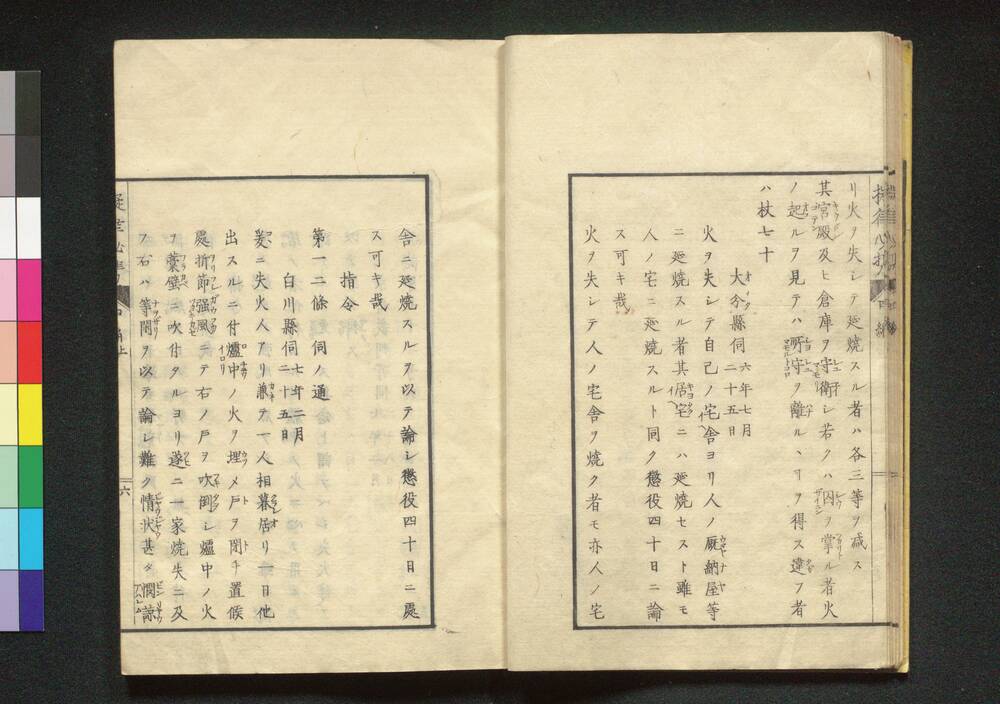 リ火ヲ失シテ延燒スル者ハ各三等ヲ减ス
其宮殿及ヒ倉庫ヲ守衛シ若クハ囚ヲ掌ル者火
ノ起ルヲ見テハ所守ヲ離ルヽヿヲ得ス違フ者
ハ杖七十
大分縣伺 六年七月二十五日
火ヲ失シテ自己ノ宅舎ヨリ人ノ厩納屋等
ニ延燒スル者其居宅ニハ延燒セスト雖モ
人ノ宅ニ延燒スルト同ク懲役四十日ニ論
ス可キ哉
火ヲ失シテ人ノ宅舎ヲ燒ク者モ亦人ノ宅
舎ニ延燒スルヲ以テ論シ懲役四十日ニ處
ス可キ哉
指令
第一二條伺ノ通
白川縣伺 七年二月二十日
爰ニ失火人アリ兼テ一人相暮居リ一日他
出スルニ付爐中ノ火ヲ埋メ戸ヲ閉チ置候
處折節强風ニテ右ノ戸ヲ吹倒シ爐中ノ火
ヲ藁壁ニ吹付タルヨリ遂ニ一家燒失ニ及
フ右ハ等閑ヲ以テ論シ難ク情状甚タ憫諒
六